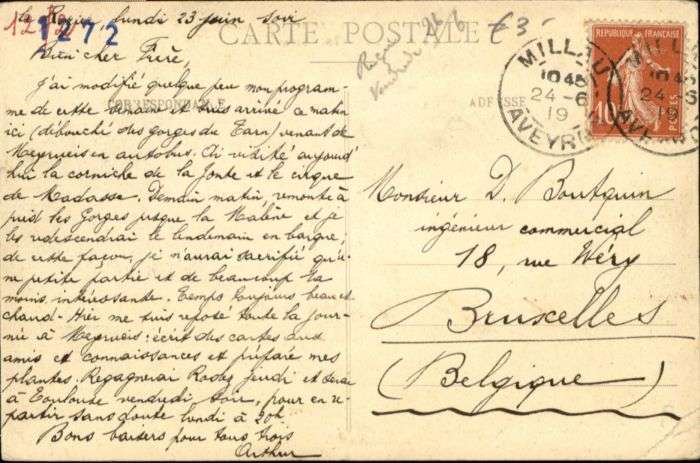 Le Rozier lundi 23 juin soir
1272
£3-
CARTE POSTALE
Bien cher Frère,
Reçue 26/6
Vendredi
CORRESPONDANCE
ADRESSE
J'ai modifié quelque peu mon program-
me de cette semaine et suis arrivé ce matin
ici (débouché des gorges du Tarn) venant de
Meyrueis en autobus. Ai visité aujourd'
hui la corniche de la Jonte et le cirque
de Madasse. Demain matin, remonte à
pied les Gorges jusque la Malène et je
les redescendrai le lendemain en barque,
de cette façon, je n'aurai sacrifié qu'u-
ne petite partie et de beaucoup la
moins intéressante. Temps toujours beau et
chaud - Hier me suis reposé toute la jour-
née à Meyrueis: écrit des cartes aux
amis et connaissances et préparé mes
plantes. Regagnerai Rodez jeudi et serai
à Toulouse vendredi soir, pour en re-
partir sans doute lundi à 20h
Bons baisers pour tous trois
Arthur
Monsieur D. Boutquin
ingénieur commercial
18, rue Wéry
Bruxelles
(Belgique)
REPUBLIQUE FRANÇAISE
10
POSTES
MILLAU
10 45
24-6
19
AVEYRON
MILLAU
10 45
24-6
19
AVEYRON